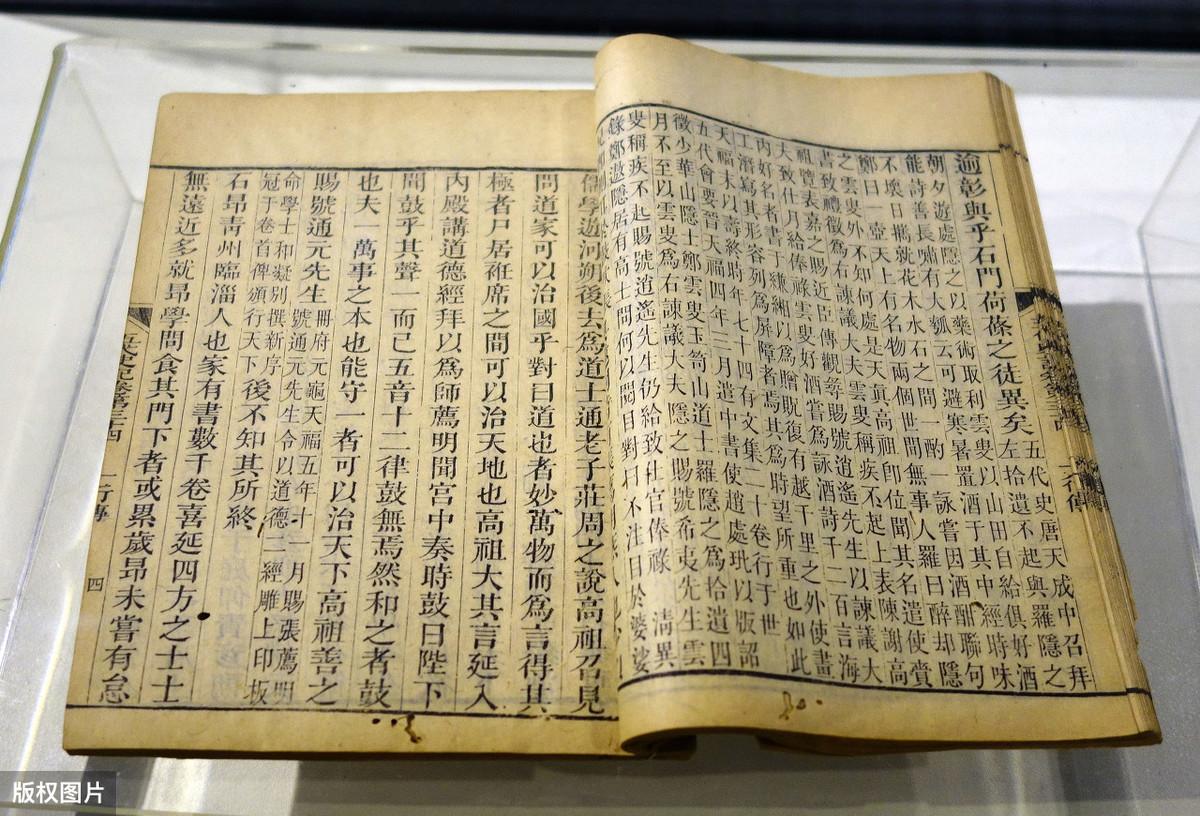 逾彰與乎石門荷蓧之徒異矣
五代史唐天成中召拜
左拾遺不起與羅隱之
朝夕遊處隱之以藥術取利雲叟以山田自給俱好酒
能詩善長嘯有大瓢云可避寒暑置酒于其中經時味
不壞日攜就花木水石之間一酌一詠嘗因酒酣聯句
鄭曰一壺天上有名物兩個世間無事人羅曰醉却隱
之雲叟外不知何處是天真高祖卽位聞其名遣使賫
書致禮徵爲右諫議大夫雲叟稱疾不起上表陳謝高
祖覽表嘉之賜近臣傳觀尋賜號逍遙先生以諫議大
夫致仕月給俸祿雲叟好酒嘗爲詠酒詩千二百言海
內好名者書于縑緗以爲贈貺復有越千里之外使畫
工潛寫其形容列爲屏障者焉其爲時望所重也如此
天福末以壽終時年七十四有文集二十卷行于世
五代會要晉天福四年二月遣中書使趙處玭以版詔
徵少華山隱士鄭雲叟玉笥山道士羅隱之爲拾遺四
月不至以雲叟爲右諫議大夫隱之賜號希夷先生雲
叟稱疾不起賜號逍遙先生仍給致仕官俸祿 淸異
錄鄭遨隱居有高士問何以閱目對曰不注目於婆娑
儒學遊河朔後去爲道士通老子莊周之說高祖召見
問道家可以治國乎對曰道也者妙萬物而爲言得其
極者尸居袵席之間可以治天地也高祖大其言延入
內殿講道德經拜以爲師薦明聞宮中奏時鼓曰陛下
聞鼓乎其聲一而已五音十二律鼓無焉然和之者鼓
也夫一萬事之本也能守一者可以治天下高祖善之
賜號通元先生
冊府元龜天福五年十一月賜張薦明
號通元先生令以道德二經雕上印板
命學士和凝別撰新序
冠于卷首俾頒行天下
後不知其所終
石昂靑州臨淄人也家有書數千卷喜延四方之士士
無遠近多就昂學問食其門下者或累歲昂未嘗有怠
一行傳
四
版权图片